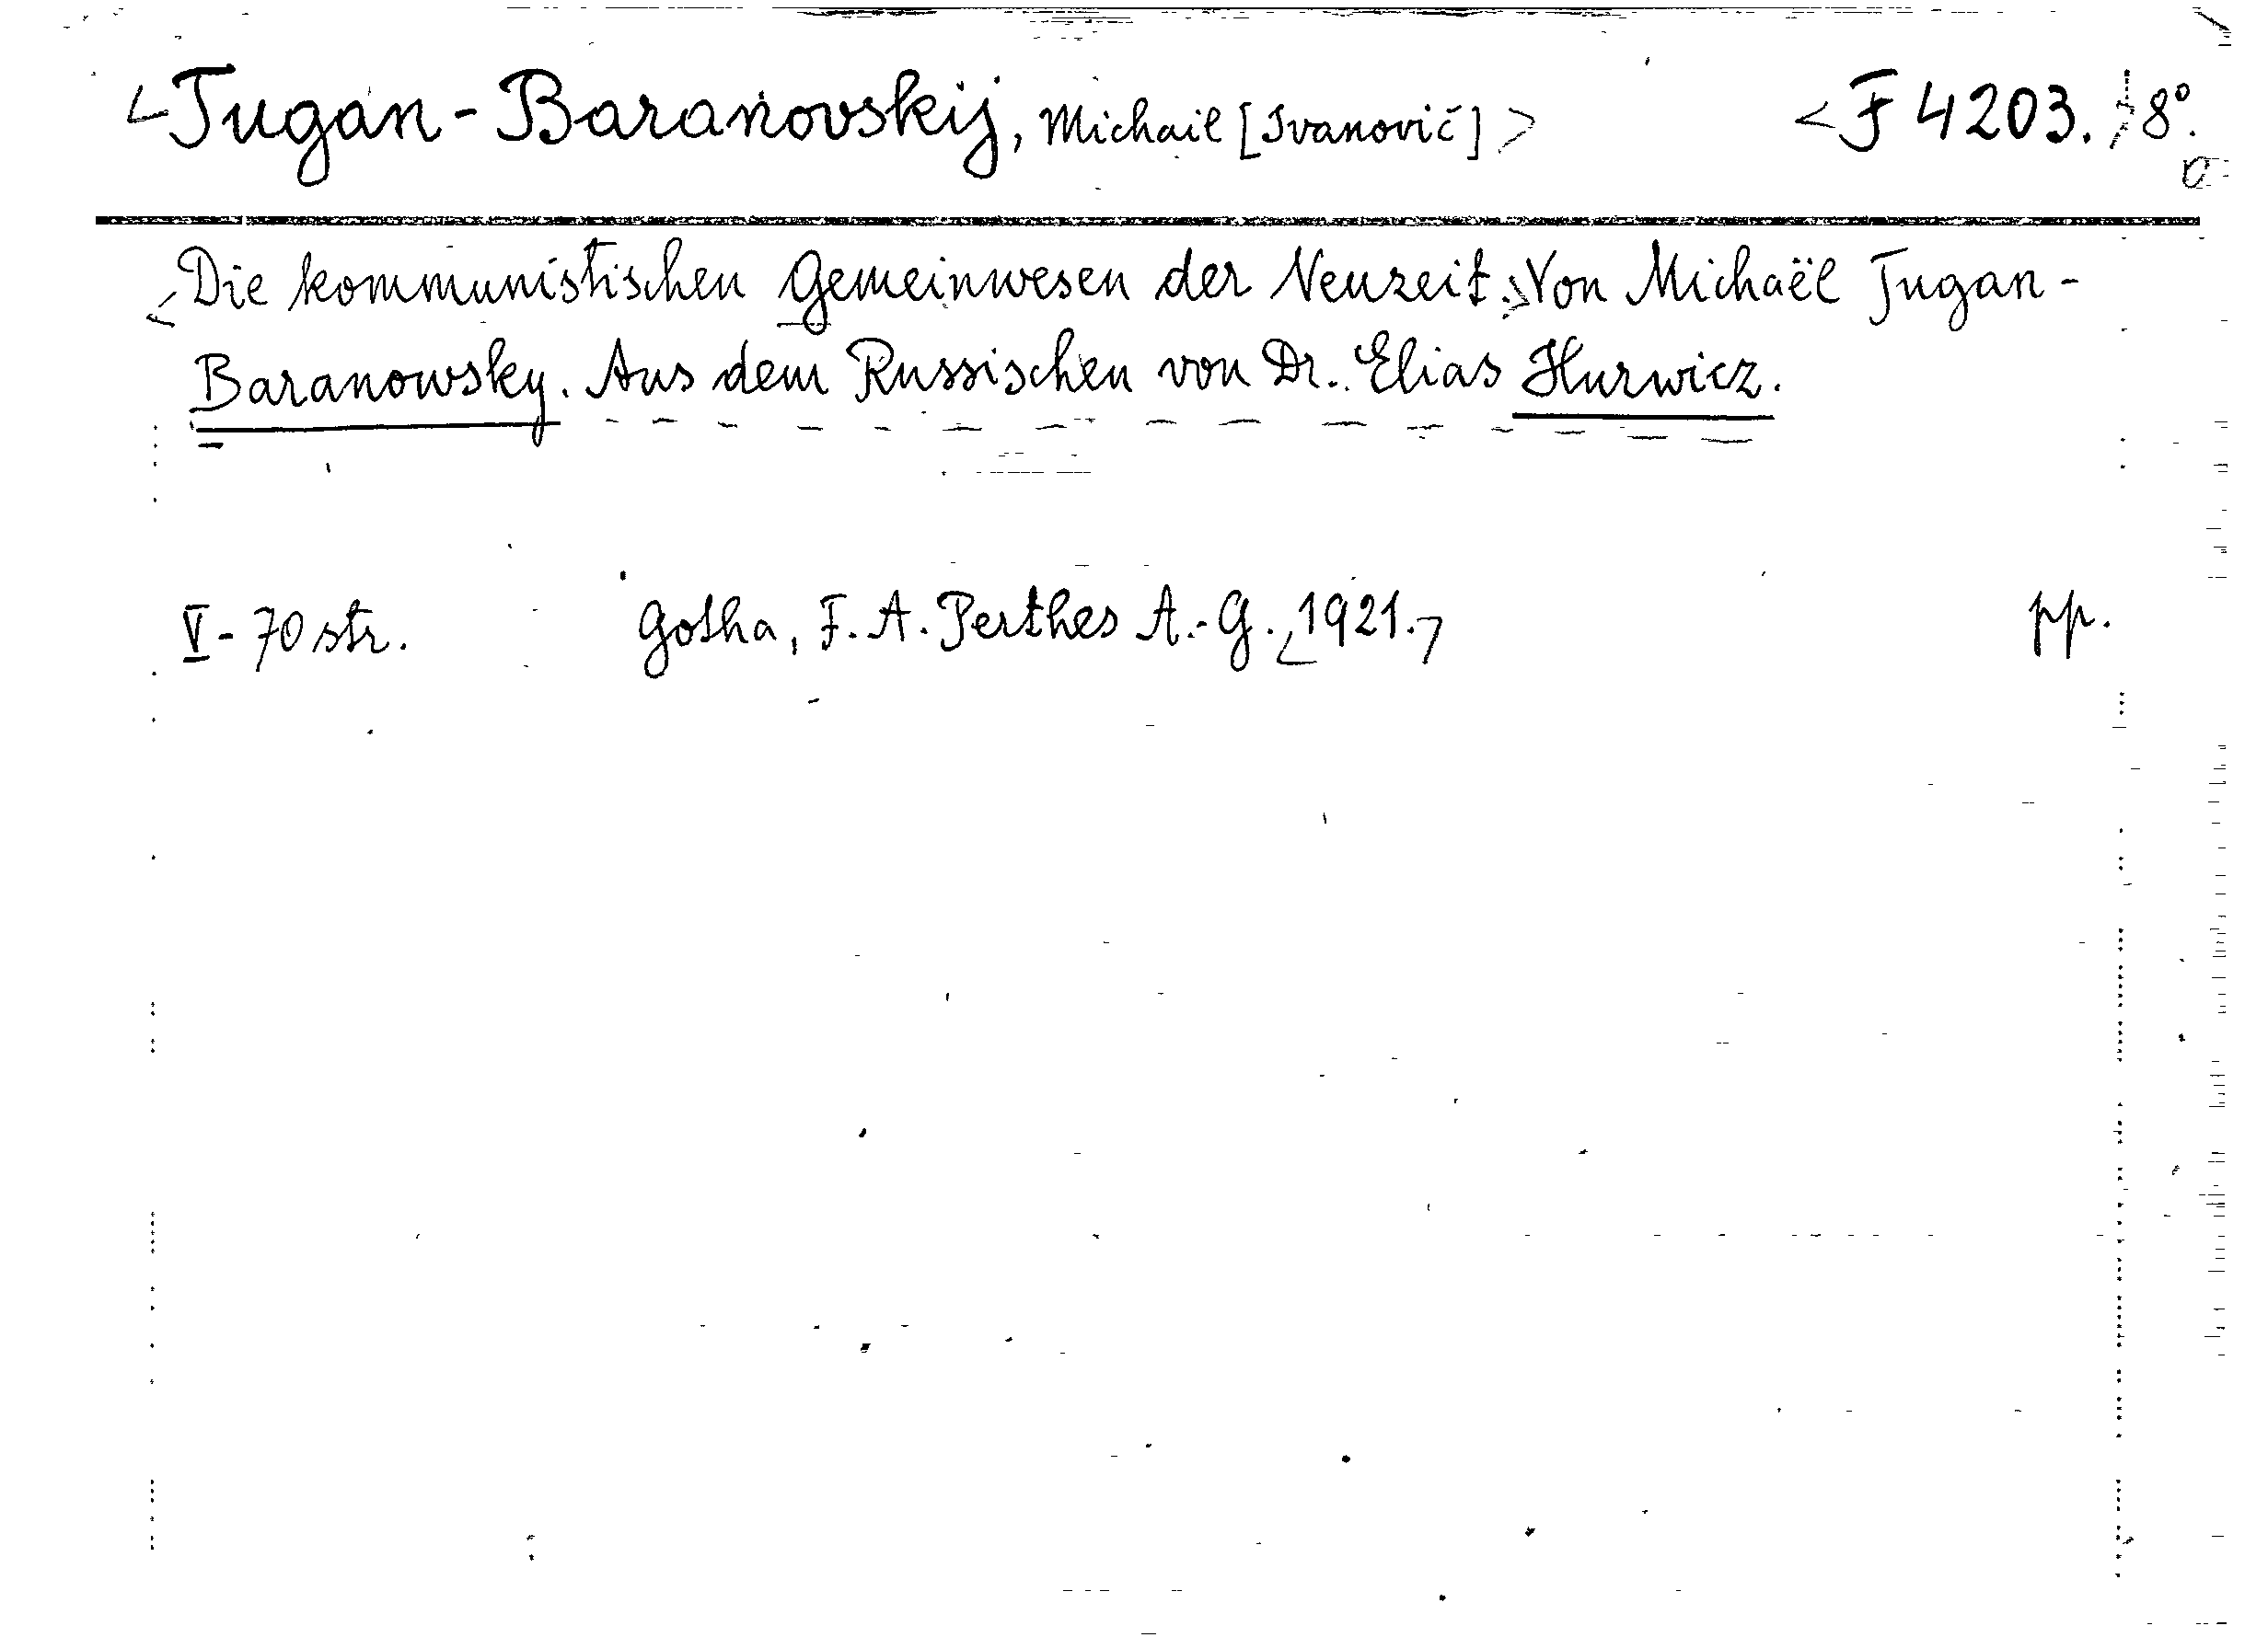 <Tugan-Baranovskij, Michail [Ivanovič]> <F 4203.>8°.
<Die kommunistischen Gemeinwesen der Neuzeit.> Von Michaël Tugan-
Baranowsky. Aus dem Russischen von Dr. Elias Hurwicz.
V - 70 str. Gotha, F. A. Perthes A.-G. <1921.> pp.